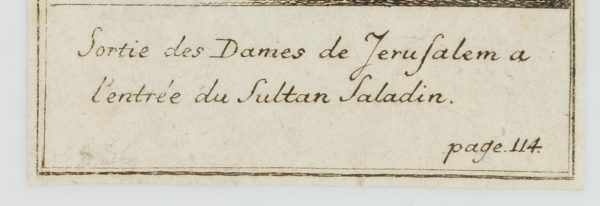 Sortie des Dames de Jeruſalem a
l'entrée du Sultan Saladin.
page.114.